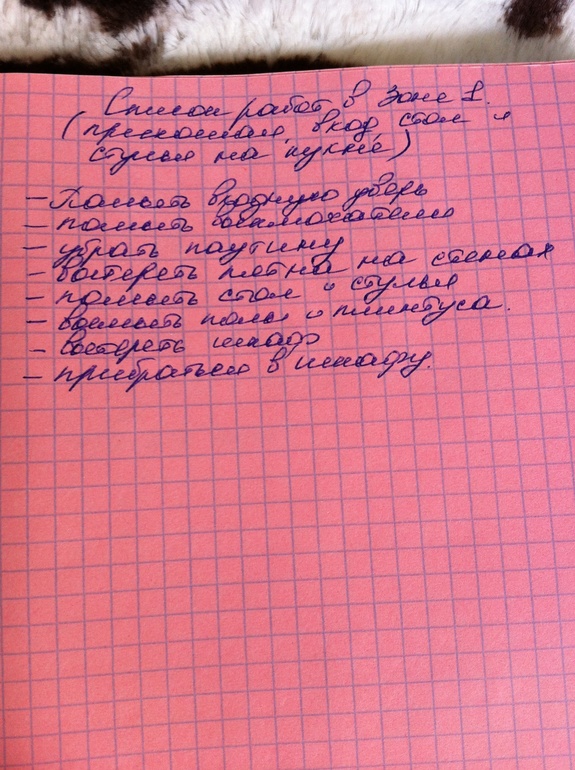 Список работ в Зоне 1.
(прихожая, вход, стол и
стулья на кухне)
– Помыть входную дверь
– помыть выключатели
– убрать паутину
– вытереть пятна на стенах
– помыть стол и стулья
– вымыть полы и плинтуса.
– вытереть шкаф
– прибраться в шкафу.